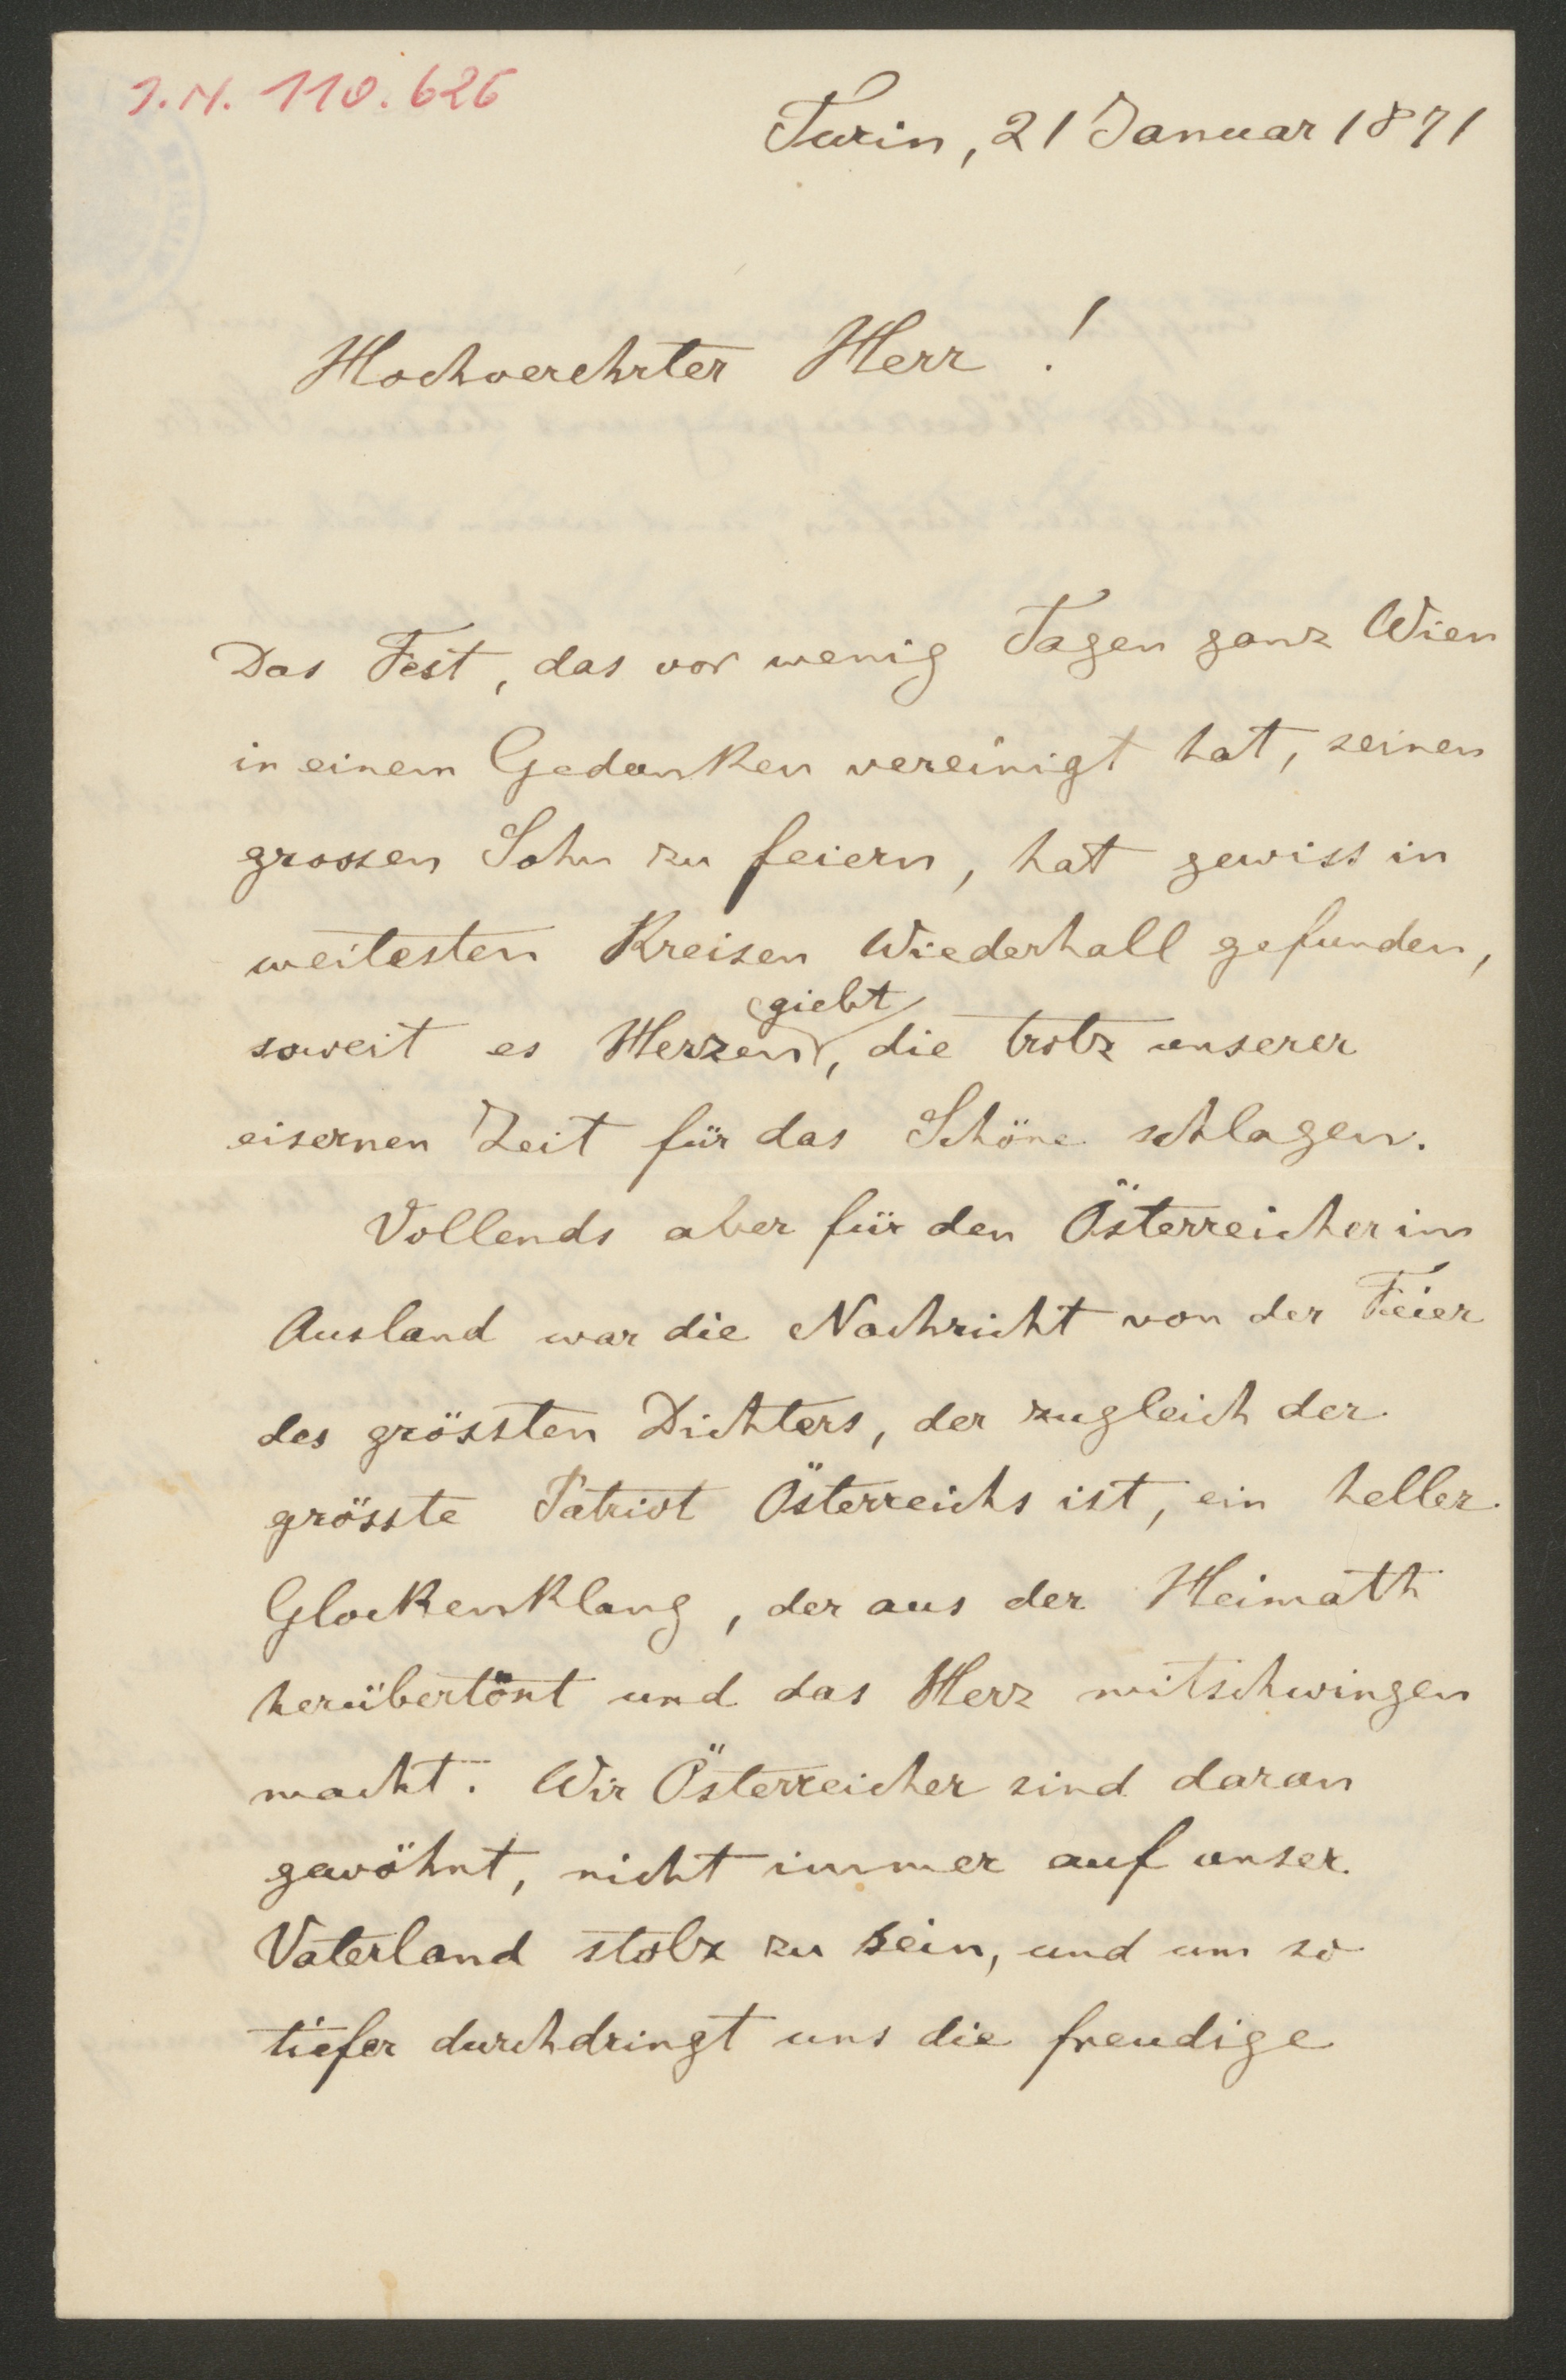 J.N. 110.626
Turin, 21 Januar 1871
Hochverehrter Herr!
Das Fest, das vor wenig Tagen ganz Wien
in einem Gedanken vereinigt hat, seinen
grossen Sohn zu feiern, hat gewiss in
weitesten Kreisen Wiederhall gefunden,
giebt
soweit es Herzen, die trotz unserer
eisernen Zeit für das Schöne schlagen.
Vollends aber für den Österreicher im
Ausland war die Nachricht von der Feier
des grössten Dichters, der zugleich der
grösste Patriot Österreichs ist, ein heller
Glockenklang, der aus der Heimath
herübertönt und das Herz mitschwingen
macht. Wir Österreicher sind daran
gewöhnt, nicht immer auf unser
Vaterland stolz zu sein, und um so
tiefer durchdringt uns die freudige